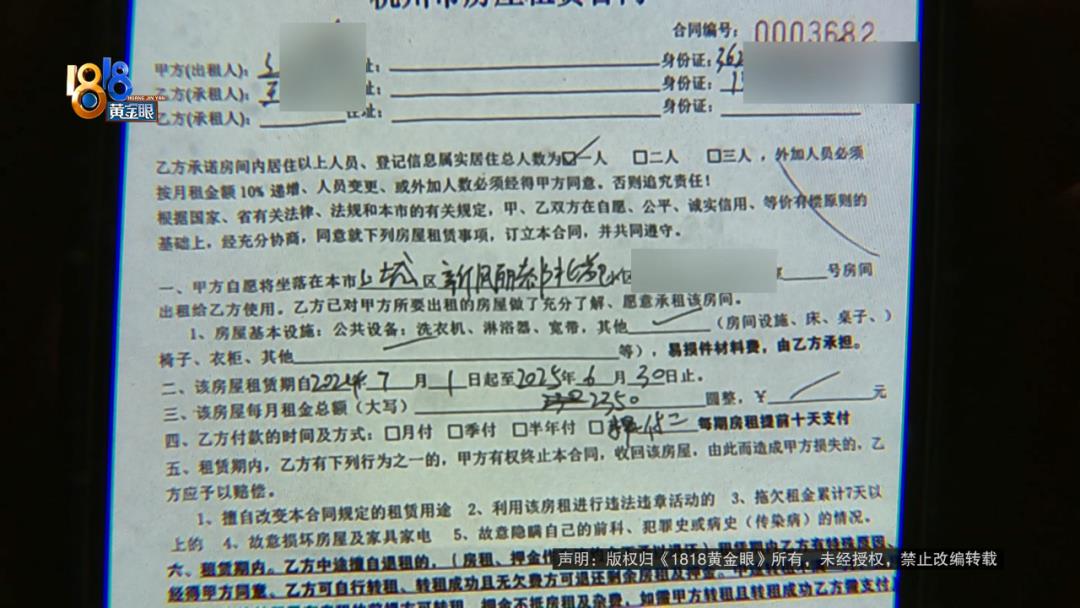 杭州市房屋租赁合同
合同编号：0003682
甲方(出租人)： 址： 身份证：362
乙方(承租人)： 址： 身份证：1
乙方(承租人)： 住址： 身份证：
1818
HUANG JIN YAN
黄金眼
乙方承诺房间内居住以上人员、登记信息属实居住总人数为☑一人 □二人 □三人，外加人员必须
按月租金额10%递增、人员变更、或外加人数必须经得甲方同意。否则追究责任！
根据国家、省有关法律、法规和本市的有关规定，甲、乙双方在自愿、公平、诚实信用、等价有偿原则的
基础上，经充分协商，同意就下列房屋租赁事项，订立本合同，并共同遵守。
一、甲方自愿将坐落在本市上城区新风丽都 区 号房间
出租给乙方使用。乙方已对甲方所要出租的房屋做了充分了解、愿意承租该房间。
1、房屋基本设施：公共设备：洗衣机、淋浴器、宽带，其他 （房间设施、床、桌子、）
椅子、衣柜、其他 等），易损件材料费，由乙方承担。
二、该房屋租赁期自2024年7月1日起至2025年6月30日止。
三、该房屋每月租金总额（大写） 2350 圆整，￥ 元
四、乙方付款的时间及方式：□月付 □季付 □半年付 □押一付二 每期房租提前十天支付
五、租赁期内，乙方有下列行为之一的，甲方有权终止本合同，收回该房屋，由此而造成甲方损失的，乙
方应予以赔偿。
1、擅自改变本合同规定的租赁用途 2、利用该房租进行违法违章活动的 3、拖欠租金累计7天以
上的 4、故意损坏房屋及家具家电 5、故意隐瞒自己的前科、犯罪史或病史（传染病）的情况。
六、租赁期内。乙方中途擅自退租的，（房租、押金 租赁期内乙方有特殊原因、
声明：版权归《1818黄金眼》所有，未经授权，禁止改编转载
经得甲方同意。乙方可自行转租、转租成功且无欠费方可退还剩余房租及押金。
押金不抵房租及杂费，如需甲方转租且转租成功乙方需支付